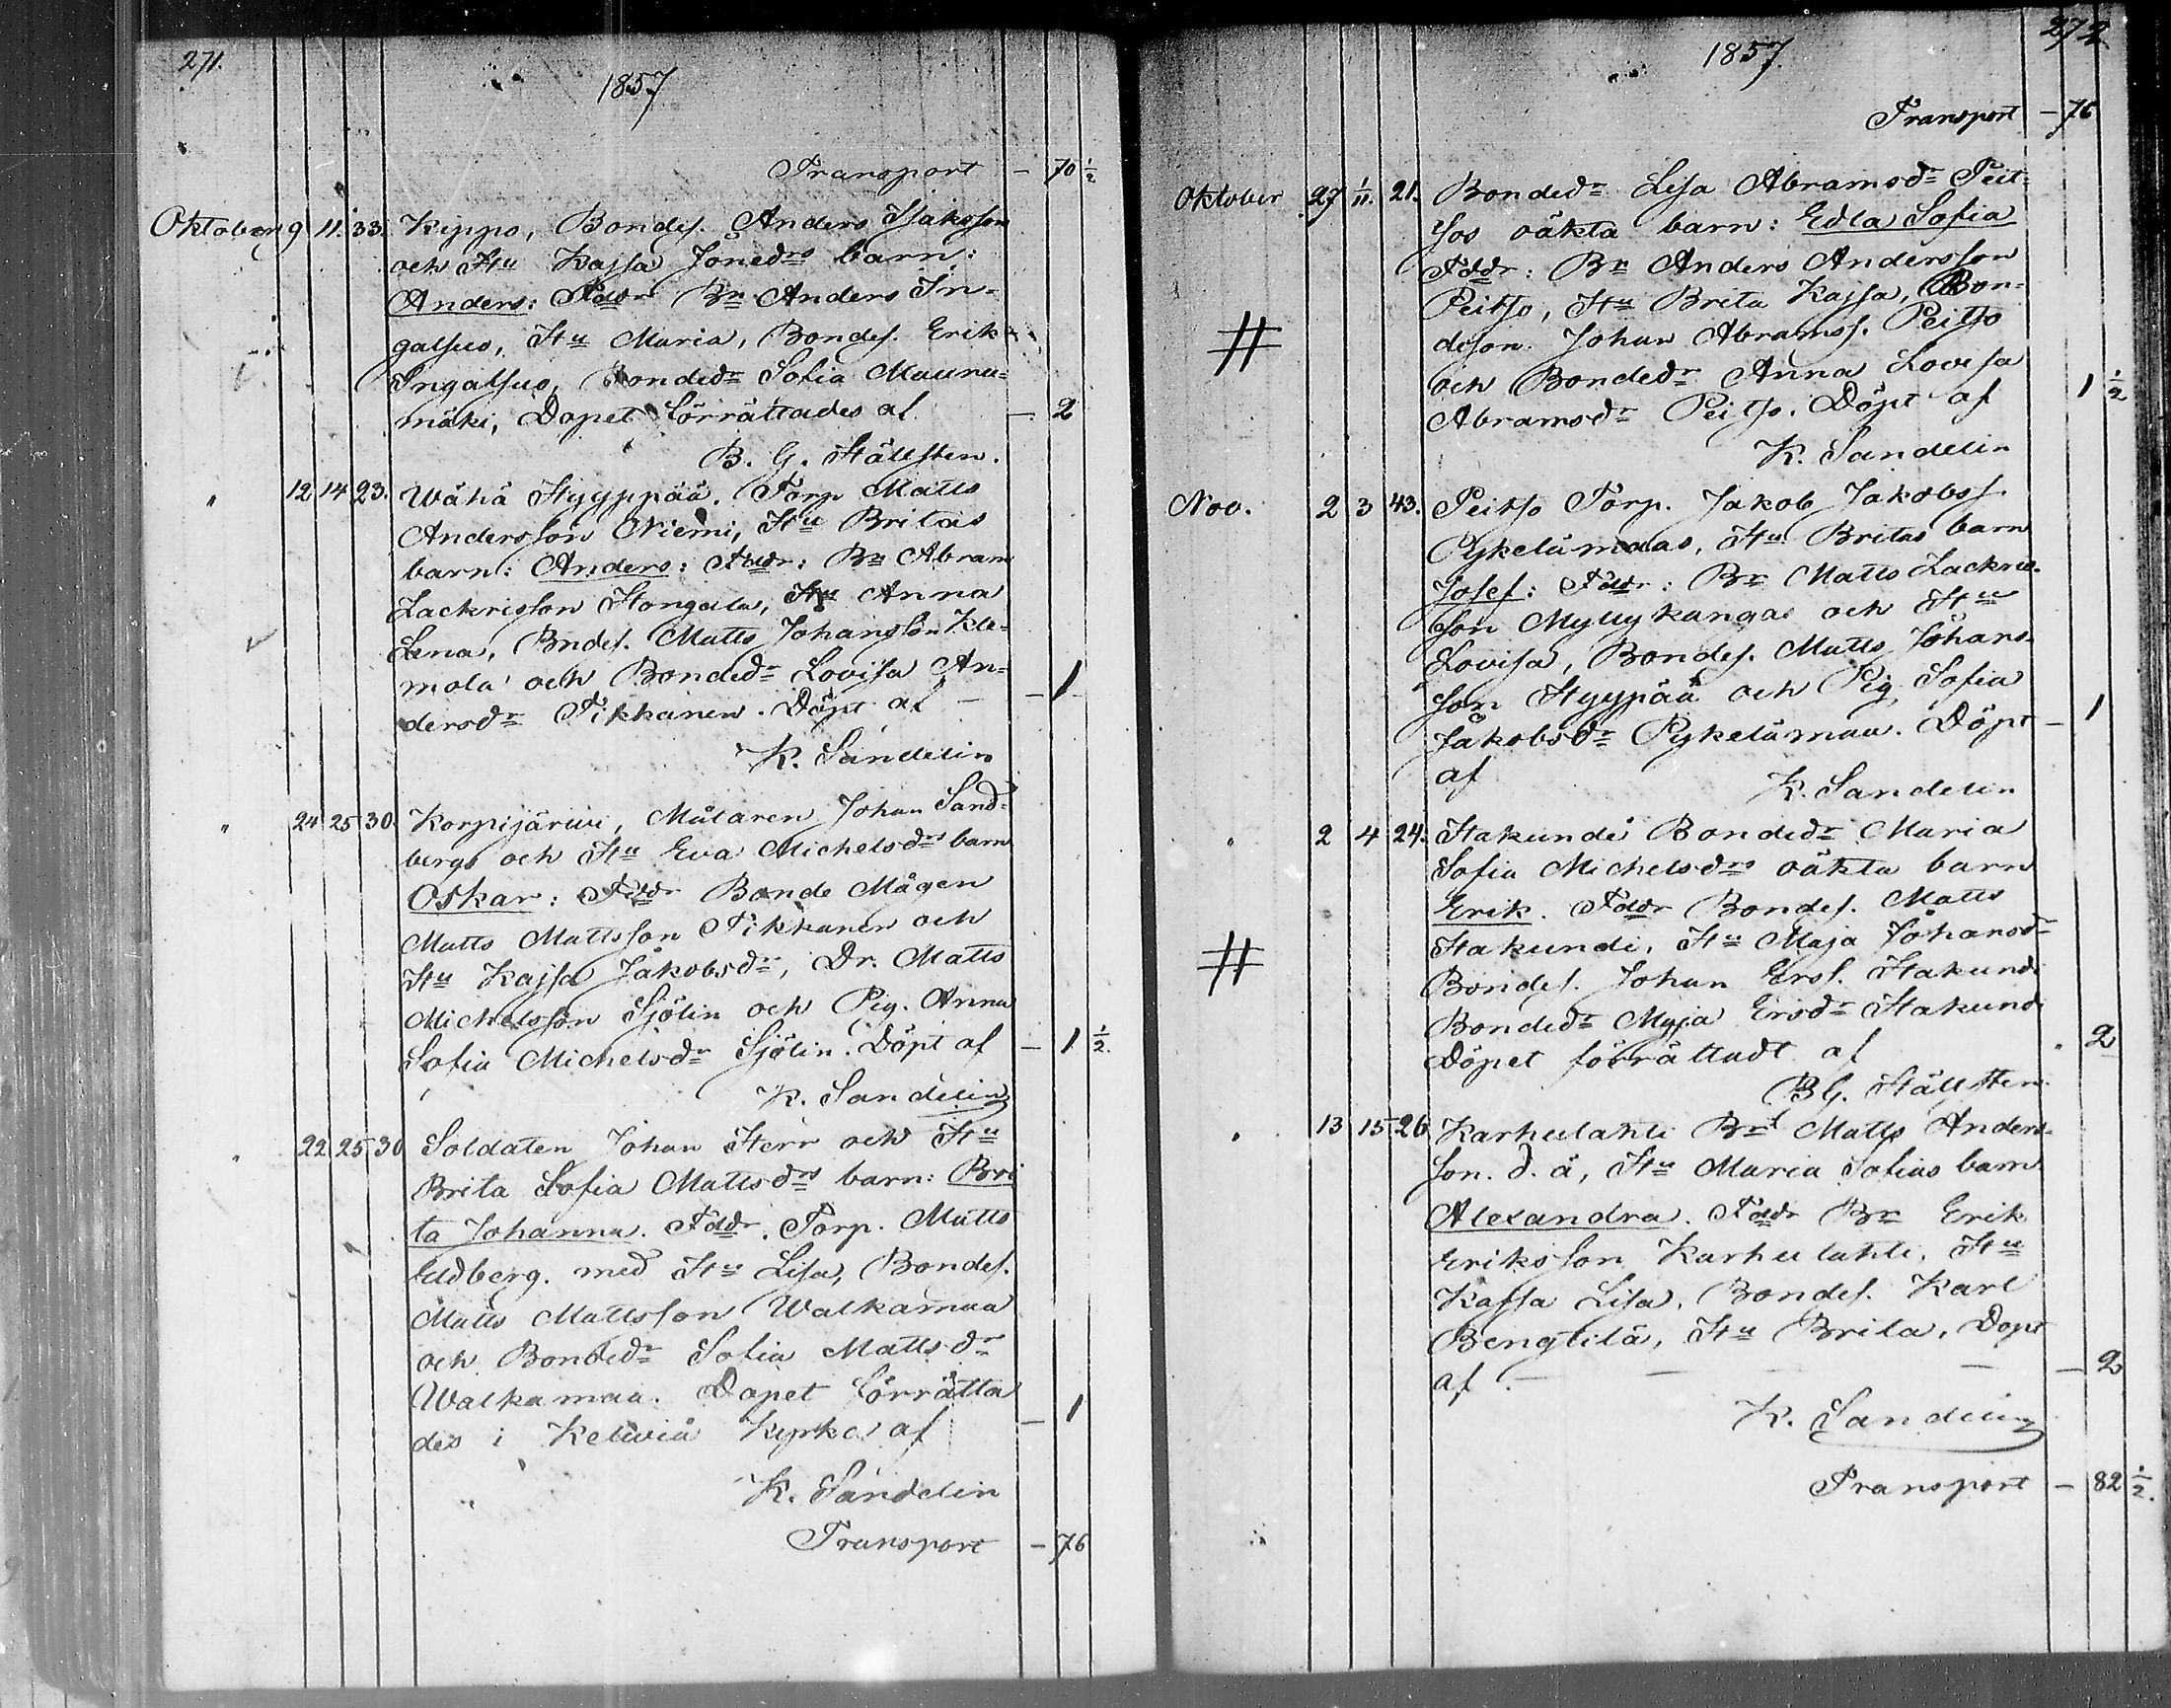 271.
1857
Transport — 70 1/2
Oktober 9 11. 33. Kippo, Bondes. Anders Isaksson
och Hu Kajsa Jonedrs barn:
Anders: Fddr Bn Anders In-
galsuo, Hu Maria, Bondes. Erik
Ingalsuo, Bondedr Sofia Maunu-
mäki, Dopet förrättades af — 2
B. G. Hällsten.
" 12 14 23. Wähä Hyyppää. Torp Matts
Andersson Niemi, Hu Britas
barn: Anders: Fddr: Bn Abram
Zackrisson Hongala, Hu Anna
Lena, Bndes. Matts Johansson Kle-
mola och Bondedr Lovisa An-
dersdr Tikkanen. Döpt af — 1
K. Sandelin
" 24 25 30. Korpijärwi, Målaren Johan Sand-
bergs och Hu Eva Michelsdrs barn
Oskar: Fddr Bonde Mågen
Matts Mattsson Tikkanen och
Hu Kajsa Jakobsdr, Dr. Matts
Michelsson Sjölin och Pig. Anna
Sofia Michelsdr Sjölin. Döpt af — 1 1/2.
K. Sandelin
" 22 25 30 Soldaten Johan Herr och Hu
Brita Sofia Mattsdrs barn: Bri
ta Johanna. Fddr. Torp. Matts
Eldberg. med Hu Lisa, Bondes.
Matts Mattsson Walkamaa
och Bondedr Sofia Mattsdr
Walkamaa. Dopet förrätta
des i Kelwiå Kyrka af — 1
K. Sandelin
Transport — 76
272
1857
Transport — 76
Oktober 27 1/11. 21. Bondedr Lisa Abramsdr Peit-
sos oäkta barn: Edla Sofia
Fddr: Bn Anders Andersson
Peitso, Hu Brita Kajsa, Bon-
deson Johan Abramss. Peitso
och Bondedr Anna Lovisa
Abramsdr Peitso. Döpt af 1 1/2
K. Sandelin
Nov. 2 3 43. Peitso Torp. Jakob Jakobss.
Pykelämaas, Hu Britas barn
Josef: Fddr: Bn Matts Zackris-
son Myllykangas och Hu
Lovisa, Bondes. Matts Johans-
son Hyypää och Pig Sofia
Jakobsdr Pykelämaa. Döpt — 1
af K. Sandelin
" 2 4 24. Hakunde Bondedr Maria
Sofia Michelsdrs oäkta barn
Erik. Fddr Bondes. Matts
Hakundi, Hu Maja Johansdr
Bondes. Johan Erss. Hakundi
Bondedr Maja Ersdr Hakundi
Döpet förrättadt af " 2
BG. Hällsten
" 13 15 26 Karhulahti Bn Matts Anders-
son. d. ä, Hu Maria Sofias barn
Alexandra. Fddr Bn Erik
Eriksson Karhulahti, Hu
Kajsa Lisa, Bondes. Karl
Bengtilä, Hu Brita, Döpt
af — — — 2
K. Sandelin
Transport — 82 1/2.